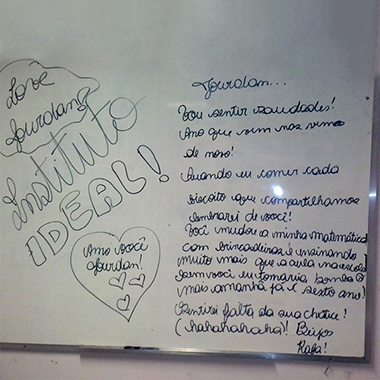 Love
Jourdan
Instituto
IDEAL!
Amo você
Jourdan!
Jourdan...
Vou sentir saudades!
Ano que vem nos vemos
de novo!
Quando eu comer cada
biscoito que compartilhamos
lembrarei de você!
Você mudou a minha matemática
com brincadeiras e
muito mais que a aula na escola
sem você eu tomaria bomba e
mais amanhã já é sexto ano!
Sentirei falta da sua chatice!
(hahahahaha)! Beijos
Rafa!